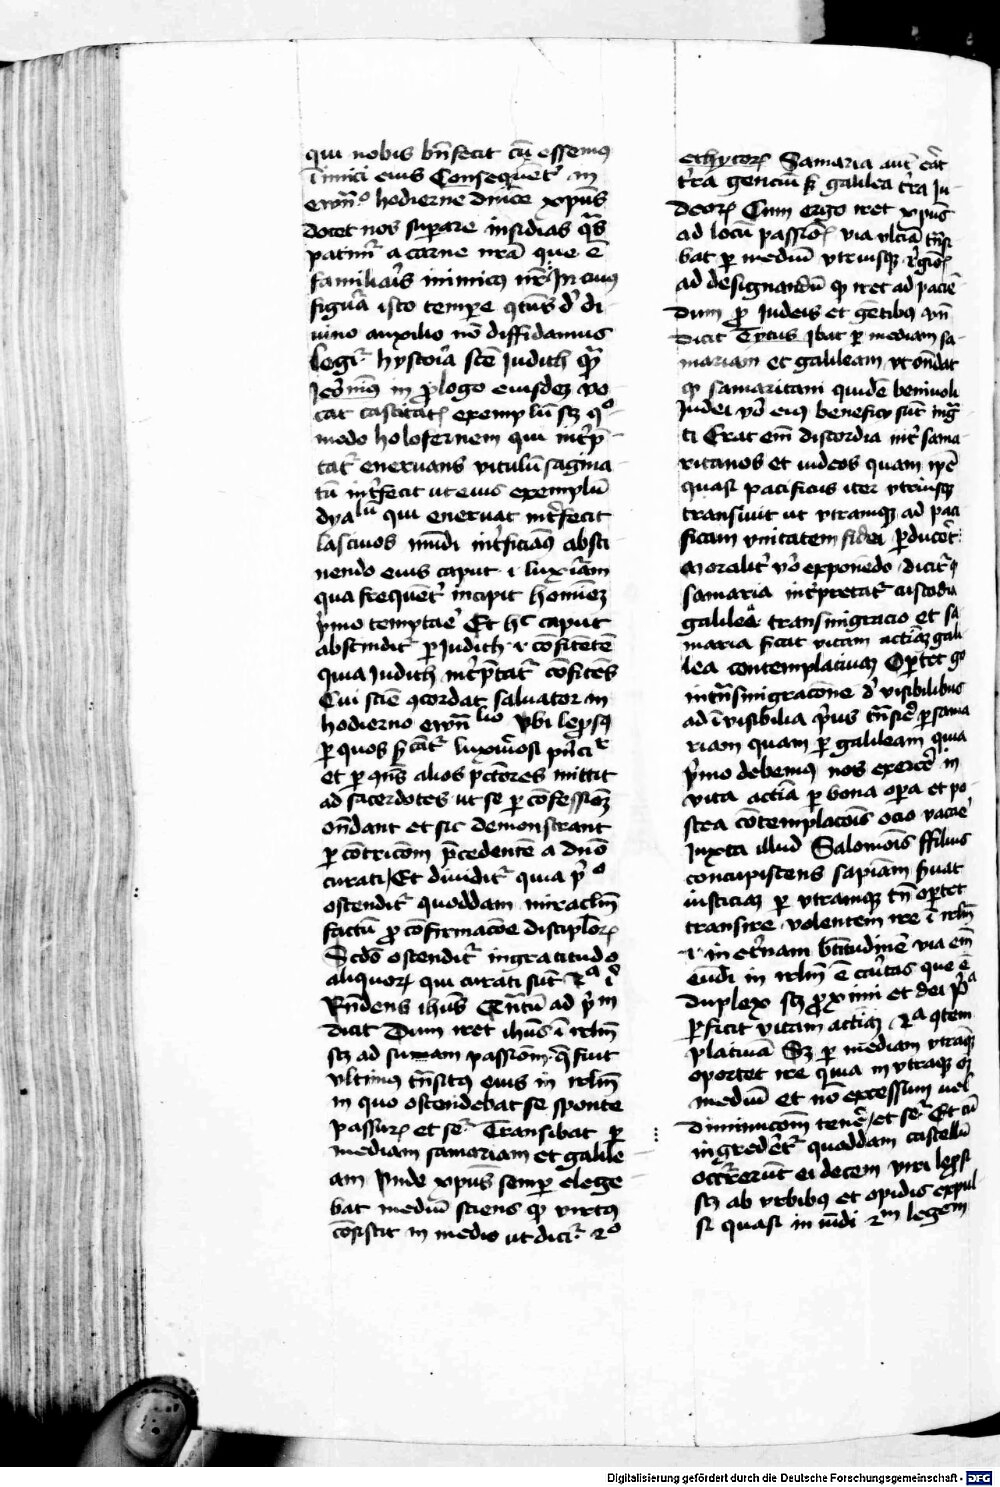 qui nobis bn̄fecit cū essemꝯ
ī imici eius Consequēt̉ in
ewn̄ᵒ hodierne dnīce xpūs
docet nos supare insidias qͣs
patimͬ a carne nrā que ē
familiaris inimicꝯ nr̄ In cuiꝯ
figurā isto tempe
uino auxilio nō diffidamus
legiͬ hystoria scē Judith
in prologo eiusdeȝ vo
cat castitatꝭ exemplū sȝ qͦ
modo holofernem qui int̉p̄
tatͬ eneruans vitulū sagina
tū int̉fecit ut eius exemplū
dyaˡᵘ qui eneruat int̉fecit
lasciuos mūdi int̉ficiāꝯ absti
nendo eius caput ⁊ luxʼiam
qua frequēt̉ incipit homīeȝ
pͥmo temptaē Et hᶜ caput
abscinditͬ ꝑ Judith ⁊ cōfitētē
quia Judith int̉p̄tatͬ cōfitēs
Cui sciē ꝯcordat saluator in
hodierno ewn̄ˡⁱᵒ Vbi lepsꝯ
ꝑ quos luxʼiosi
et ꝑ qn̄s alios pcc̄tores mittit
ad sacerdotes ut se ꝑ cōfessioȝ
on̄dant et sic demonstrant
ꝑ cōtricōm p̄cedentē a dn̄o
curati Et diuiditͬ quia pͥᵒ
ostenditͬ quoddam miraclm̄
factū ꝓ cōfirmacōe disciplorꝭ
Scd̄o ostenditͬ ingratitudo
aliquorꝭ qui curati sūt
Rn̄dens ihūs Qͣntū ad pͥm
dicit Dum iret ihūs ī irlm̄
sȝ ad suam passiōm q̄ fuit
vltimꝯ tn̄sitꝯ eius in irlm̄
in quo ostendebat se sponte
passurꝭ et seͬ Transibat ꝑ
mediam samariam et galile
am Vnde xpūs semꝑ elege
bat mediū sciens ꝙ virtꝯ
cōsistit in medio ut diciͬ 2ᵒ
ethycorꝭ Samaria aut̄ erāt
t̉ra genciū s̉ galilea t̉ra Ju
deorꝭ Cum ergo iret xpūs
ad locū passioīs via vltiā tn̄si
bat ꝑ mediū vtriusqȝ rͤgioīs
ad designandū ꝙ iret ad pacie
dum ꝓ Judeis et gētibꝯ vn̄
dicit Tytus Ibat ꝑ mediam sa
mariam et galileam vt on̄dat
ꝙ samaritani quidē beniuoli
Judei vͦo eiꝯ beneficijs sūt ingͣ
ti Erat em̄ discordia int̉ sama
ritanos et iudeos quam ip̄e
quasi pacificus iter vtriusqȝ
transiuit ut vtramqȝ ad paci
ficam vnitatem fidei ꝑducer̄t
Moralit̉ vͦo exponēdo dicitͬ ꝙ
samaria int̉pretatͬ custodia
galilea transmigracio et sa
maria sͥcat vitam actiāȝ gali
lea contemplatiuaȝ Oꝑtet gͦ
in tn̄smigracōne d̉ visibilibus
ad īvisibilia pͥus tn̄siē ꝑ sama
riam quam ꝑ galileam quia
pͥmo debemꝯ nos exercē in
vita actiā ꝑ bona oꝑa et po
stea cōtemplacōis ocio vacare
Juxta illud Salomōis ffilius
concupiscens sapiām seruat
iusticiaȝ ꝑ vtramqȝ tn̄ oꝑtet
transire volentem ire ī irlm̄
⁊ in etʼnam btītudinē via em̄
eundi in irlm̄ ē caʼitas que ē
duplex sȝ proximi et dei pͥᵃ
ꝑficit vitam actiāȝ 2ᵃ ꝯtem
platiuā Sȝ ꝑ mediam vtraqȝ
oportet ire quia in vtraqȝ ē
mediū et nō excessum uel
diminucōm tenē et seͬ Et cū
ingredēt̉ quoddam castellū
occurrerūt ei decem viri lepsi
sȝ ab vrbibꝯ et opidis expul
si quasi in mūdi 2ᵐ legem
Digitalisierung gefördert durch die Deutsche Forschungsgemeinschaft - DFG